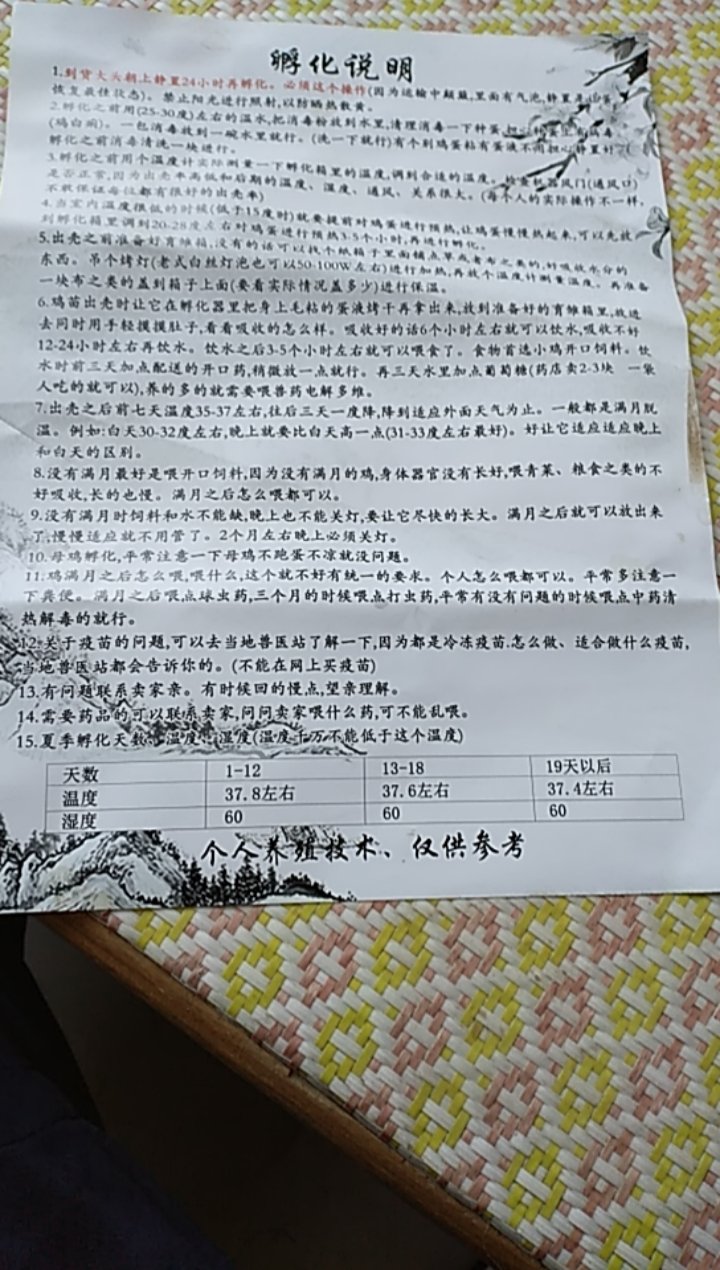 孵化说明
1.到货大头朝上静置24小时再孵化。必须这个操作(因为运输中颠簸,里面有气泡,静置
恢复最佳状态)。禁止阳光进行照射,以防晒热散黄。
2.孵化之前用(25-30度)左右的温水,把消毒粉放到水里,清理消毒一下种蛋
(鸡白痢)。一包消毒放到一碗水里就行。(洗一下就行)有个别鸡蛋粘有蛋液不用担心
孵化之前消毒清洗一块进行。
3.孵化之前用个温度计实际测量一下孵化箱里的温度,调到合适的温度。检查机器风门(通风口)
是否正常,因为出壳率高低和后期的温度、湿度、通风、关系很大。(每个人的实际操作不一样,
不敢保证每位都有很好的出壳率)
4.当室内温度很低的时候(低于15度时)就要提前对鸡蛋进行预热,让鸡蛋慢慢热起来,可以先放
到孵化箱里调到20-28度左右对鸡蛋进行预热3-5个小时,再进行孵化。
5.出壳之前准备好育雏箱,没有的话可以找个纸箱子里面铺点草或者布之类的,好吸收水分的
东西。吊个烤灯(老式白丝灯泡也可以50-100W左右)进行加热,再放个温度计测量温度。再准备
一块布之类的盖到箱子上面(要看实际情况盖多少)进行保温。
6.鸡苗出壳时让它在孵化器里把身上毛粘的蛋液烤干再拿出来,放到准备好的育雏箱里,放进
去同时用手轻摸摸肚子,看看吸收的怎么样。吸收好的话6个小时左右就可以饮水,吸收不好
12-24小时左右再饮水。饮水之后3-5个小时左右就可以喂食了。食物首选小鸡开口饲料。饮
水时前三天加点配送的开口药,稍微放一点就行。再三天水里加点葡萄糖(药店卖2-3块 一袋
人吃的就可以),养的多的就需要喂兽药电解多维。
7.出壳之后前七天温度35-37左右,往后三天一度降,降到适应外面天气为止。一般都是满月脱
温。例如:白天30-32度左右,晚上就要比白天高一点(31-33度左右最好)。好让它适应适应晚上
和白天的区别。
8.没有满月最好是喂开口饲料,因为没有满月的鸡,身体器官没有长好,喂青菜、粮食之类的不
好吸收,长的也慢。满月之后怎么喂都可以。
9.没有满月时饲料和水不能缺,晚上也不能关灯,要让它尽快的长大。满月之后就可以放出来
了,慢慢适应就不用管了。2个月左右晚上必须关灯。
10.母鸡孵化,平常注意一下母鸡不跑蛋不凉就没问题。
11.鸡满月之后怎么喂,喂什么,这个就不好有统一的要求。个人怎么喂都可以。平常多注意一
下粪便。满月之后喂点球虫药,三个月的时候喂点打虫药,平常有没有问题的时候喂点中药清
热解毒的就行。
12.关于疫苗的问题,可以去当地兽医站了解一下,因为都是冷冻疫苗.怎么做、适合做什么疫苗,
当地兽医站都会告诉你的。(不能在网上买疫苗)
13.有问题联系卖家亲。有时候回的慢点,望亲理解。
14.需要药品的可以联系卖家,问问卖家喂什么药,可不能乱喂。
15.夏季孵化天数、温度、湿度(温度千万不能低于这个温度)
天数 1-12 13-18 19天以后
温度 37.8左右 37.6左右 37.4左右
湿度 60 60 60
个人养殖技术、仅供参考